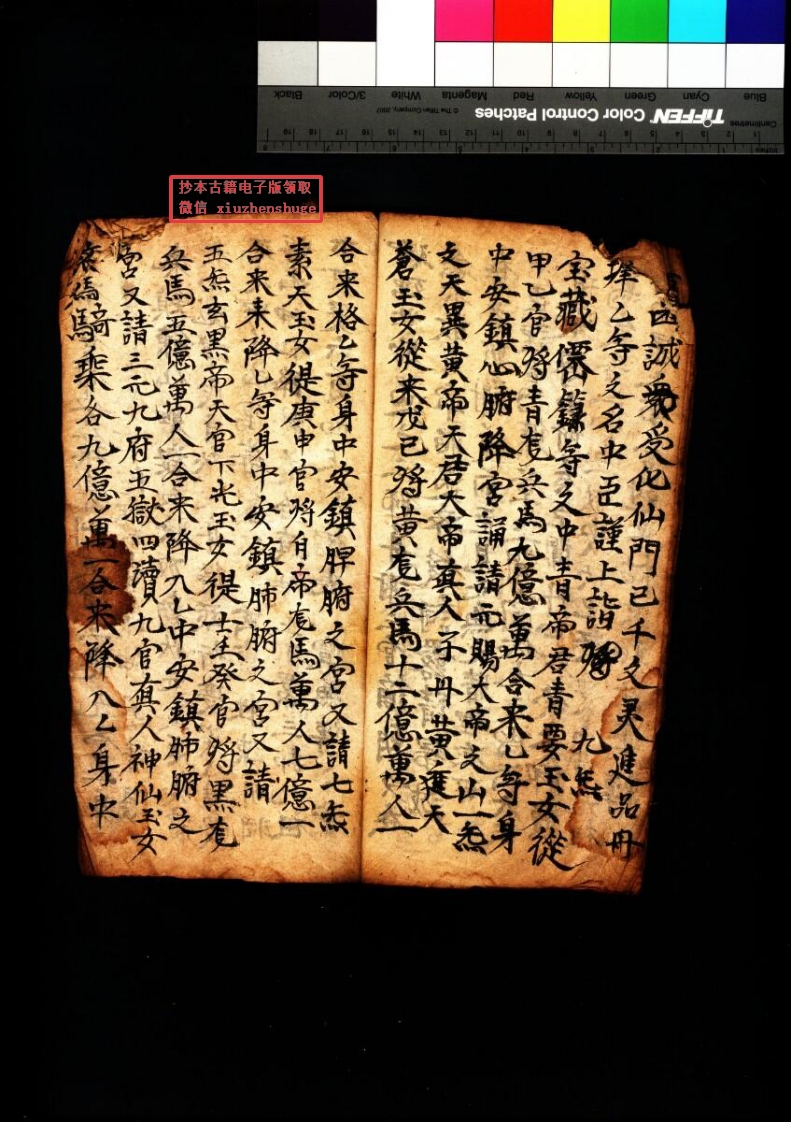 Blue Cyan Green Yellow Red Magenta White 3/Color Black
TIFFEN Color Control Patches
© The Tiffen Company, 2007
Centimetres
Inches
抄本古籍电子版领取
微信 xiuzhenshuge
誠受化仙門已千文灵進品丹
乙等之名中臣謹上詣 九炁
宝藏籙等之中青帝君青要玉女從
甲乙官将青色兵馬九億萬合来乙等身
中安鎮心腑降宮誦請元賜大帝文山一炁
文天異黄帝天君大帝真人子丹黄庭天
蒼玉女從来戊己将黄色兵馬十二億萬人一
合来格乙等身中安鎮脾腑之宮又請七炁
素天玉女從庚申官将白帝色馬萬人七億一
合来来降乙等身中安鎮肺腑之宮又請
五炁玄黑帝天官下光玉女從士壬癸官将黑色
兵馬五億萬人一合来降入乙中安鎮肺腑之
宮又請三元九府五獄四瀆九官真人神仙玉女
騎乘各九億萬一合来降入乙身中